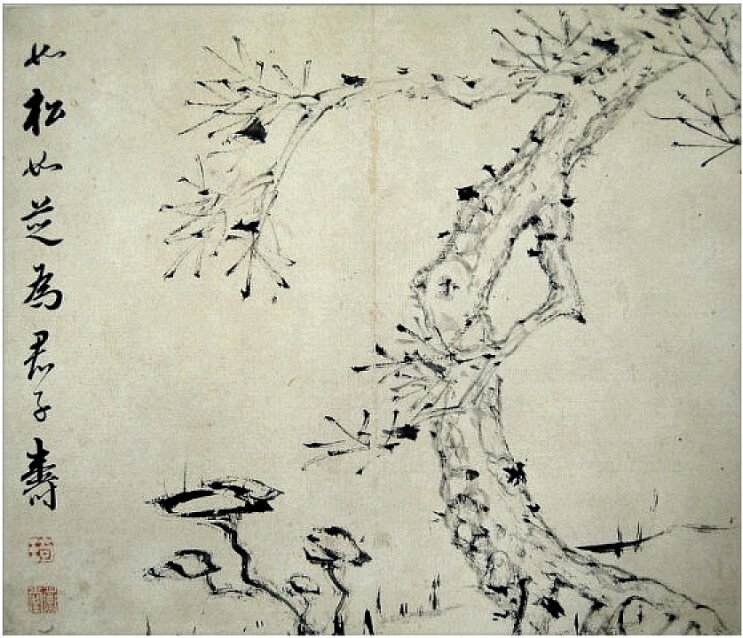 如松如芝為君子壽